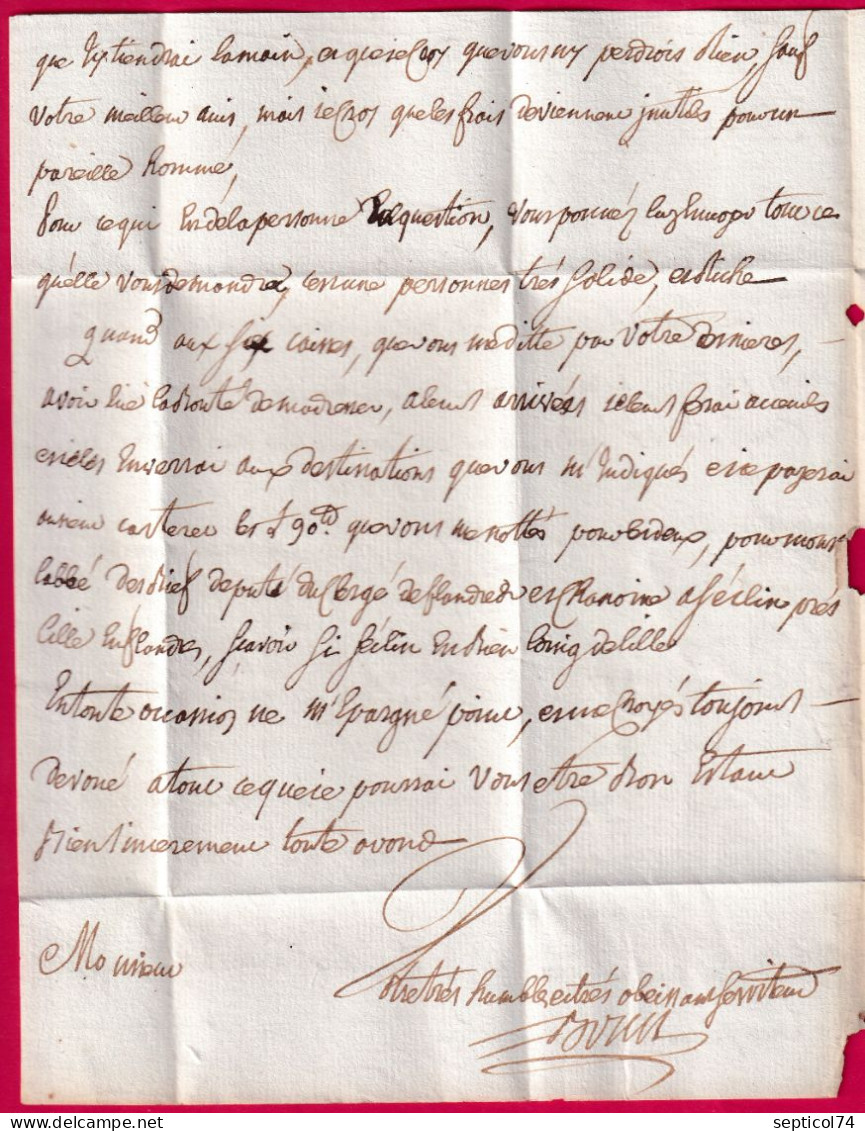 que j'y tiendrai la main, et que je croy que vous ny perdrois Rien, sauf
votre meilleur avis, mais je croy que les frais deviennent jnutils pour un
pareille homme,
Pour ce qui Est de la personne En question, vous pouvéz luy Envoyer tout ce
qu'elle vous demandra, cest une personnes trés solide, et Riche
Quand aux six caisses, que vous me ditte par votre derniere,
avoir Eué la Bonté de madresser, a leurs arrivées je leurs ferai acceuils
et je les Enverrai aux destinations que vous m'Indiqués et je payerai
les 90 que vous me nottés pour les deux, pour mons.r
labbé deputé du Clergé de flandre et Chanoine a Séclin prés
Lille En flandres, sçavoir si séclin Est Bien loing de lille
En toute occassion ne m'Epargné point, et me Croyés toujours
devoué a tout ce que je pourrai vous etre Bon Estant
Bien sincerement toute
Monsieur
Votre trés humble et trés obeissant serviteur
septicol74